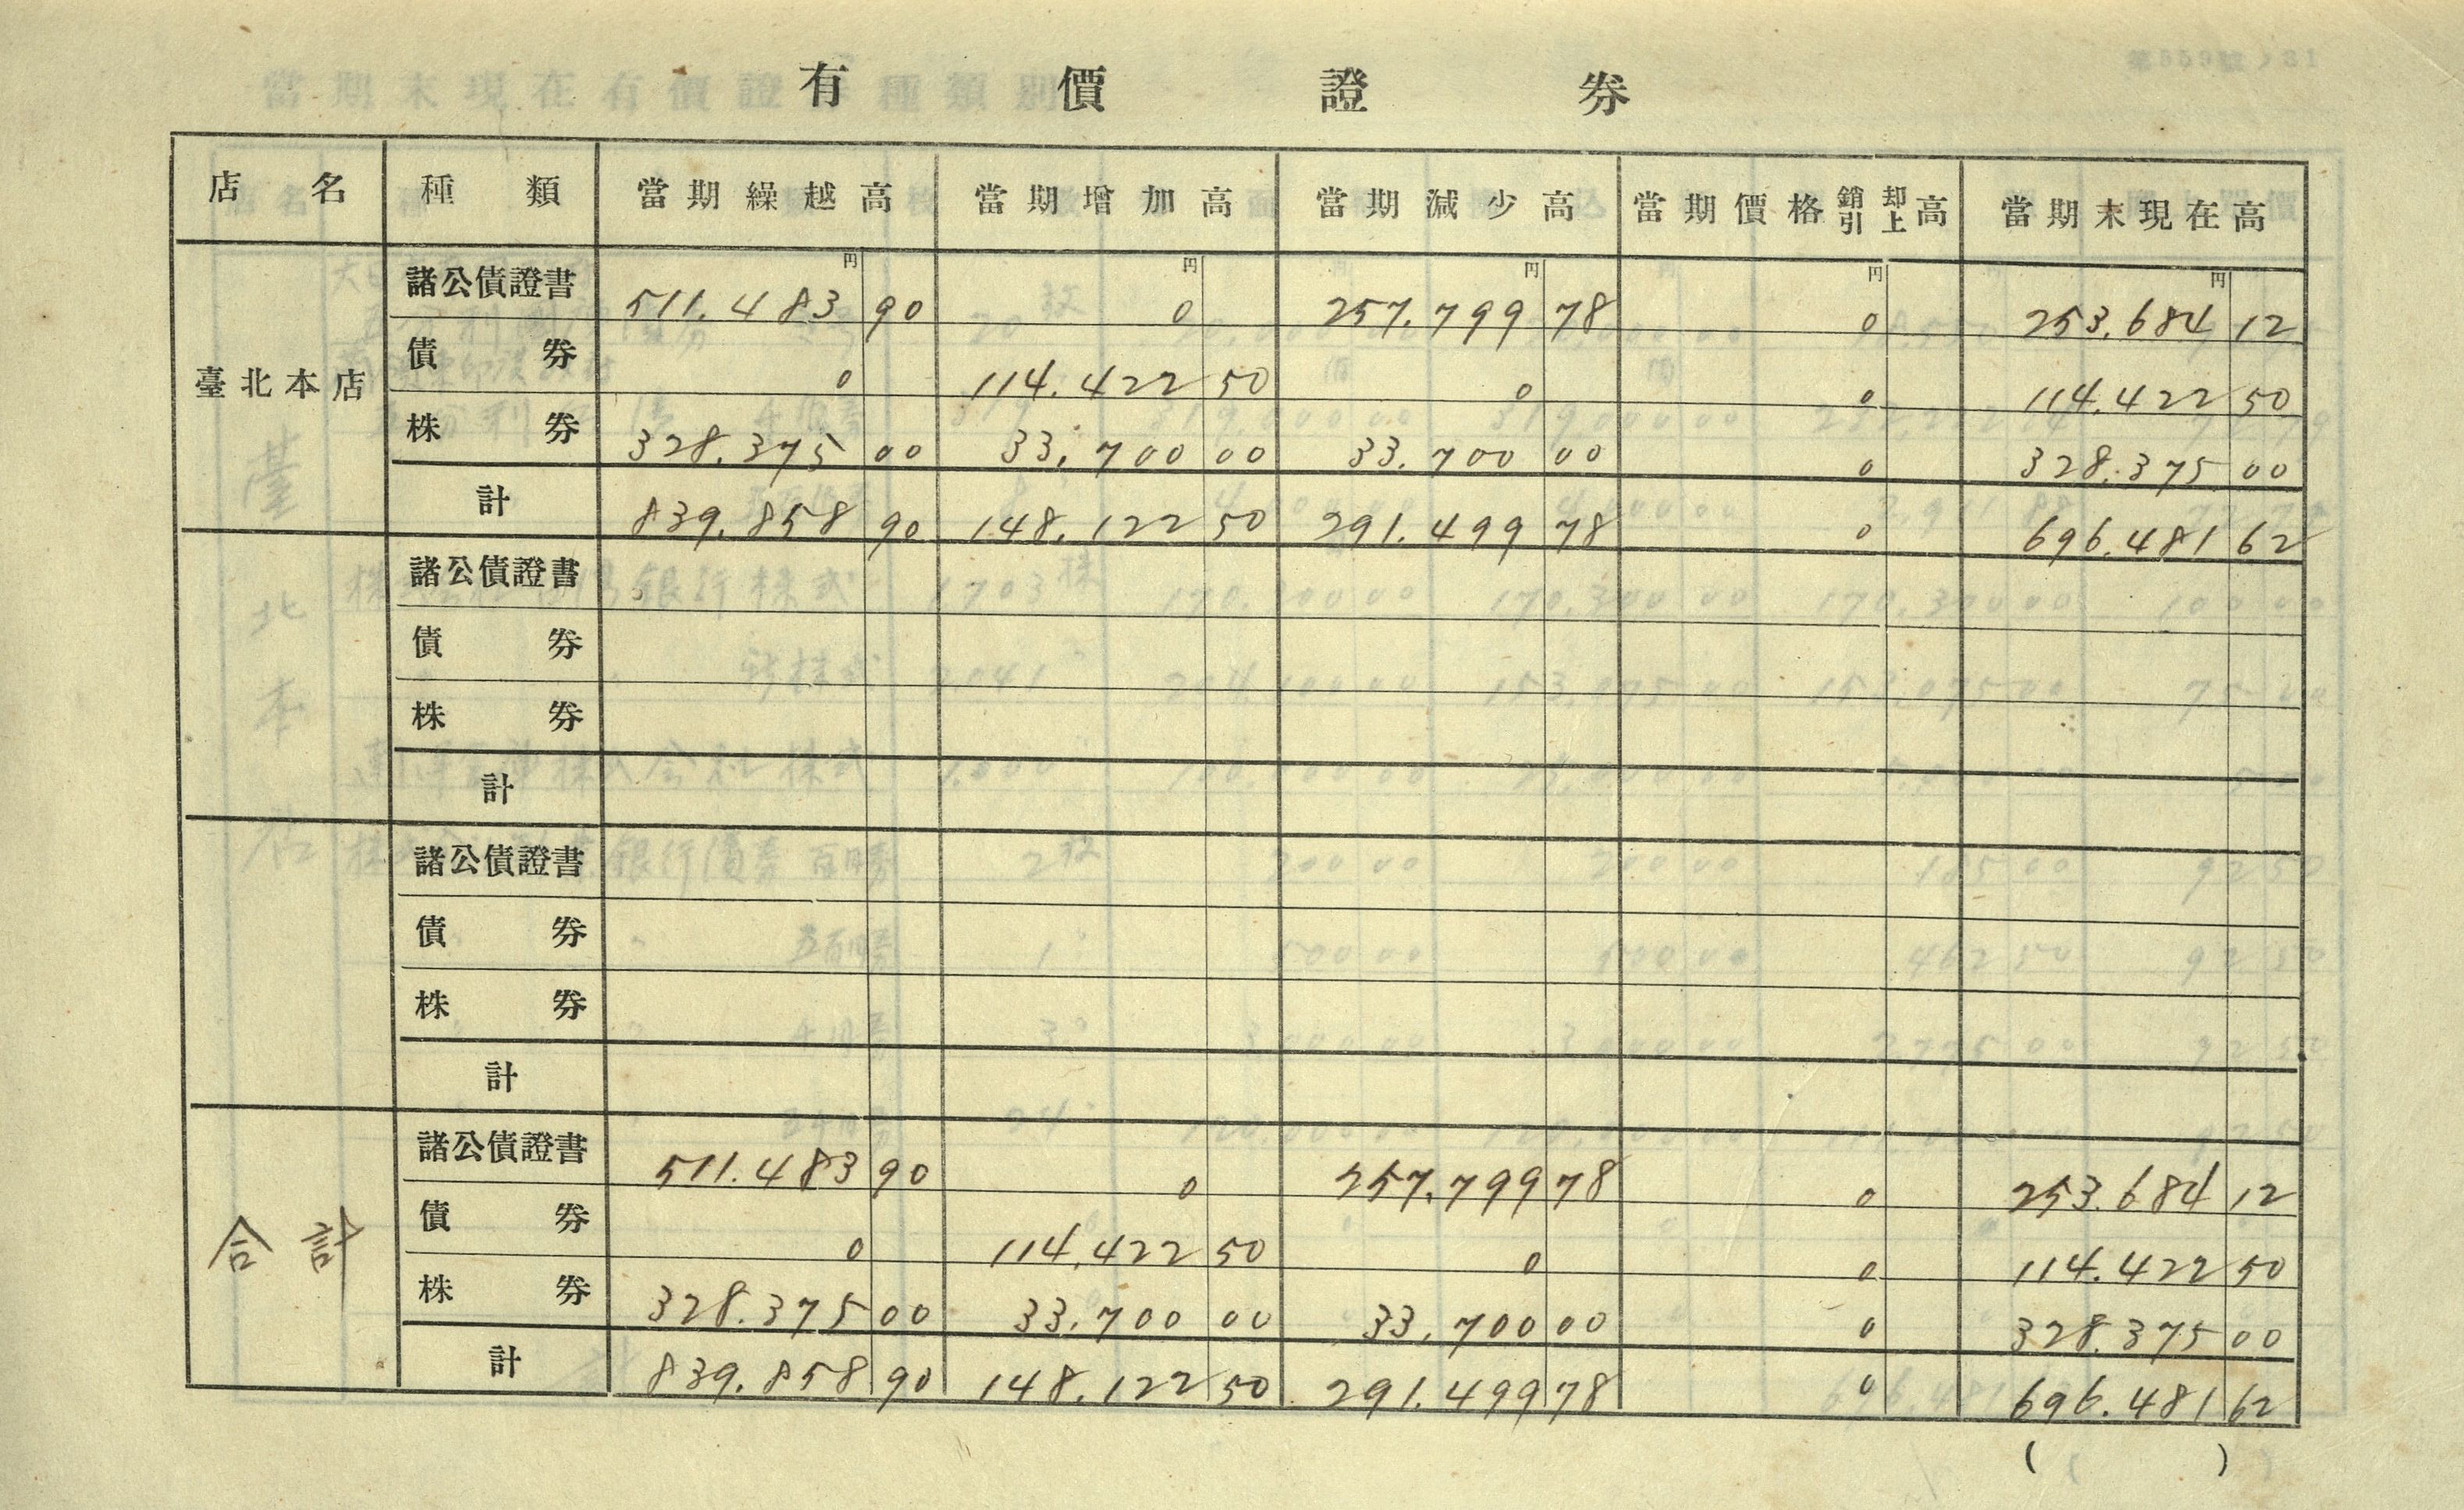 有價證券
店名 種類 當期繰越高 當期增加高 當期減少高 當期價格銷却引上高 當期末現在高
円 円 円 円 円
臺北本店
諸公債證書 511.483 90 0 257.799 78 0 253.684 12
債券 0 114.422 50 0 0 114.422 50
株券 328.375 00 33.700 00 33.700 00 0 328.375 00
計 839.858 90 148.122 50 291.499 78 0 696.481 62
諸公債證書
債券
株券
計
諸公債證書
債券
株券
計
合計
諸公債證書 511.483 90 0 257.799 78 0 253.684 12
債券 0 114.422 50 0 0 114.422 50
株券 328.375 00 33.700 00 33.700 00 0 328.375 00
計 839.858 90 148.122 50 291.499 78 0 696.481 62
( )